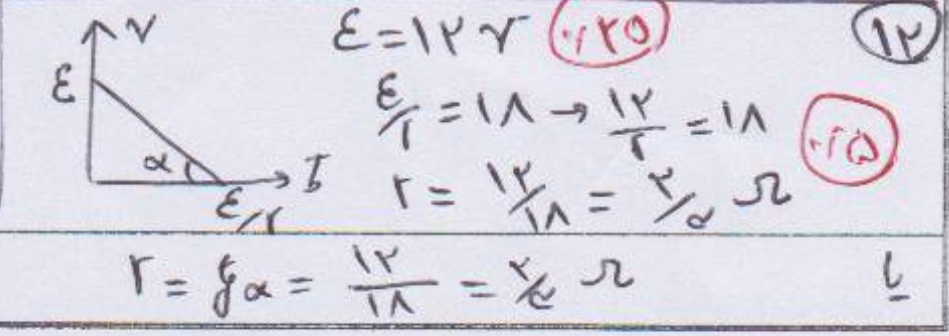 V
ε
α
I
ε/r
ε = ۱۲ V ۰٫۲۵ ۱۲
ε/r = ۱۸ → ۱۲/r = ۱۸
۰٫۲۵
r = ۱۲/۱۸ = ۲/۳ Ω
r = tgα = ۱۲/۱۸ = ۲/۳ Ω یا